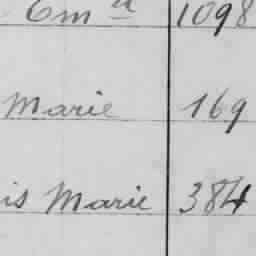 Em a 1098
Marie 169
is Marie 384